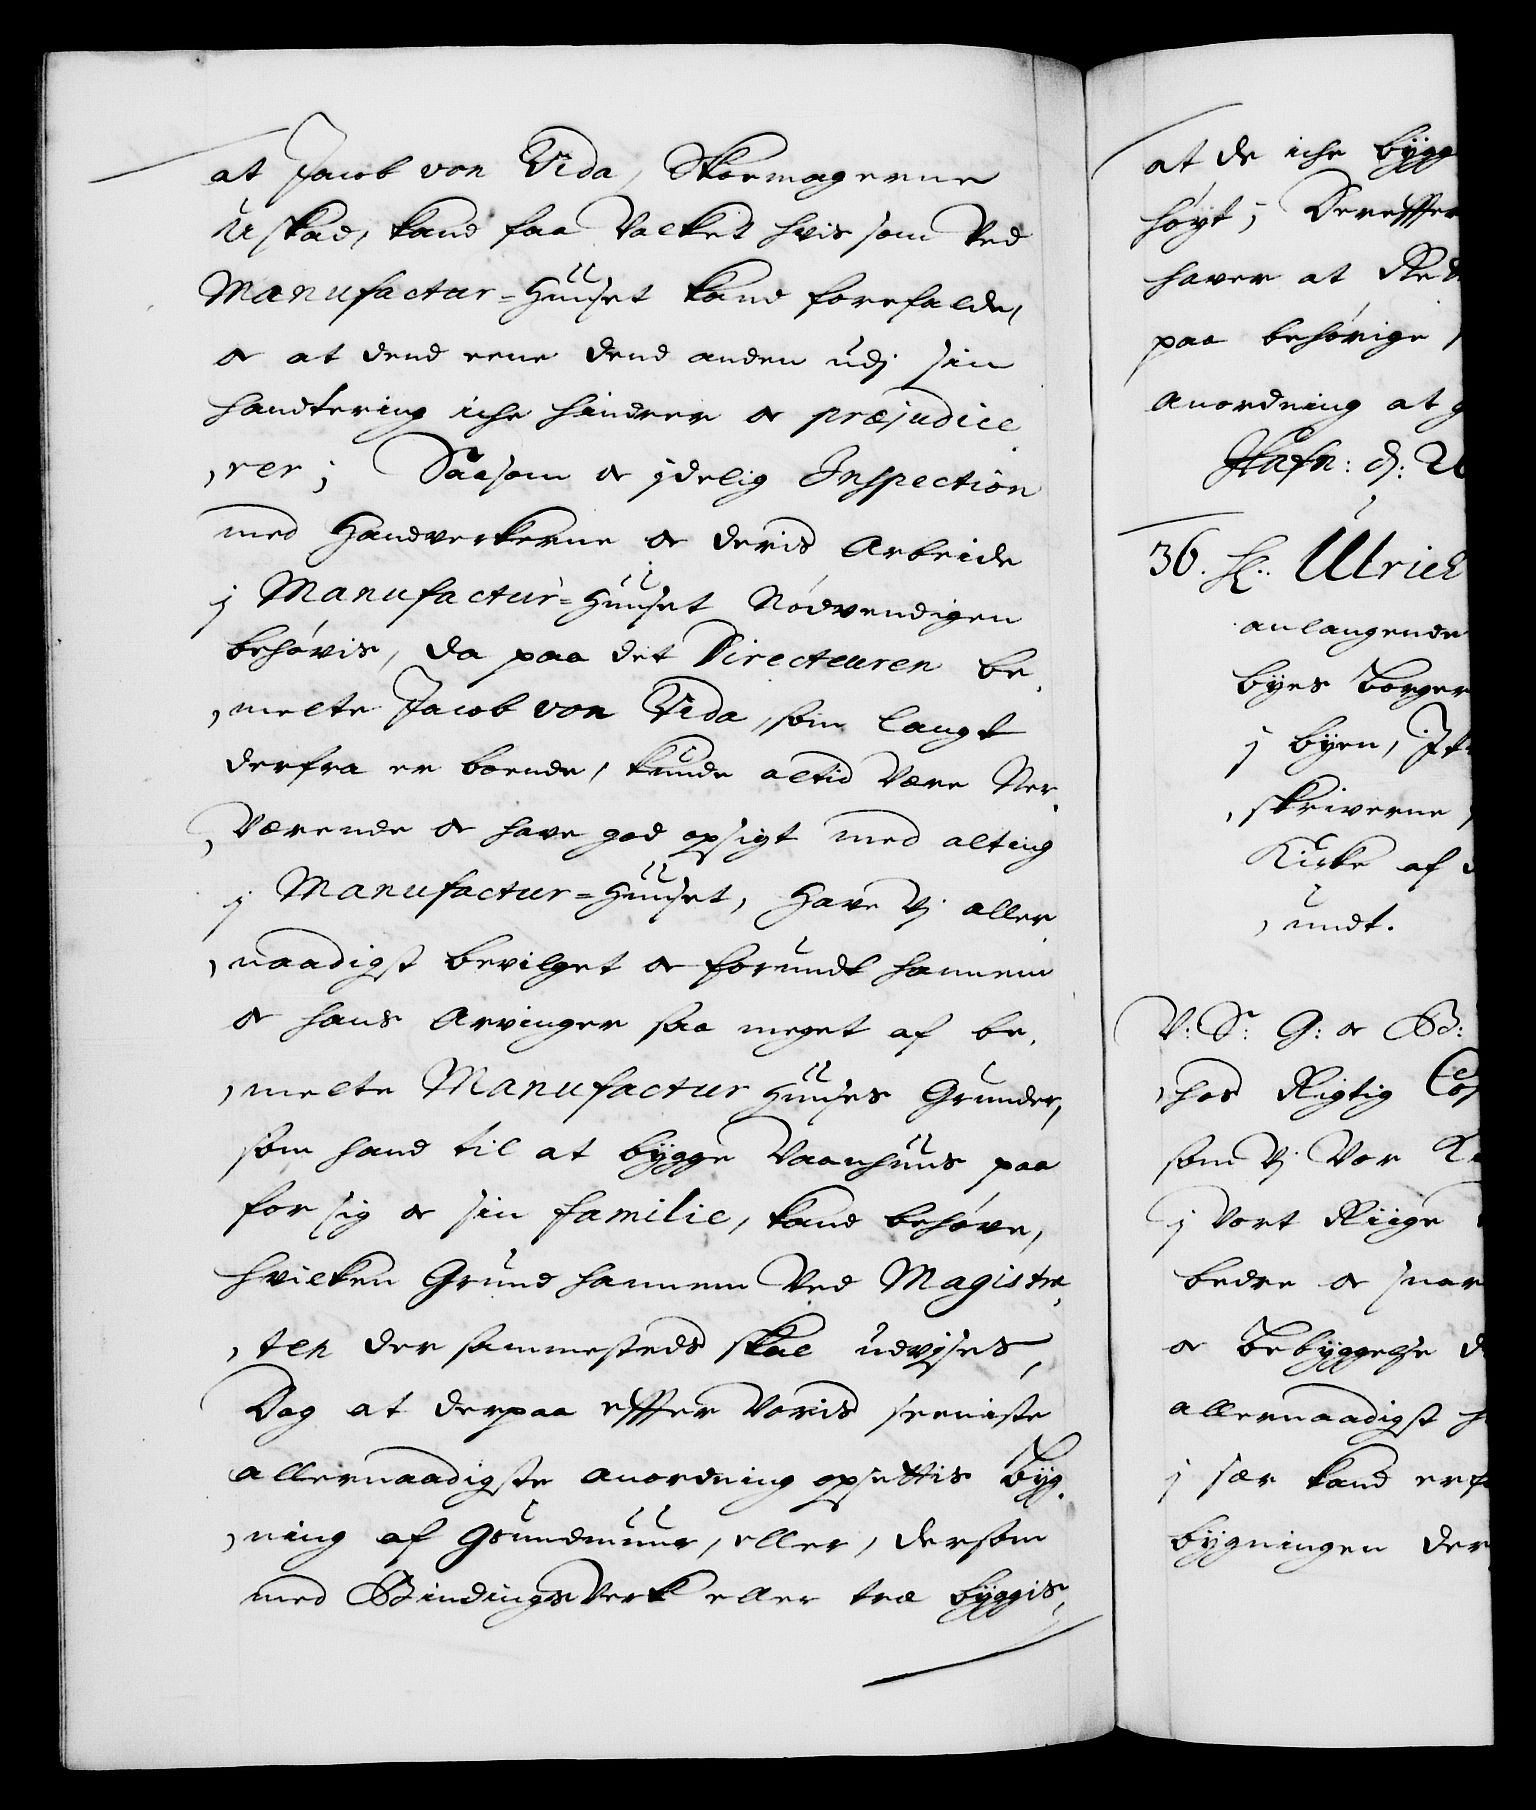 at Jacob von Vida, Skoemagerne
Uskad, kand faa Valket hvis som Ved
Manufactur-Huuset kand forefalde,
og at dend eene dend anden udj sin
handtering iche hindrer og præjudice
,rer; Saasom og jdelig Inspection
med Handverkerne og deris Arbeide
j Manufactur-Huuset Nødvendigen
behøvis, da paa det Directeuren be,
,melte Jacob von Vida, som langt
derfra er boende, kunde altid være Ner,
,Værende og have god opsigt med alting
j Manufactur-Huuset, Have Vj aller,
,naadigst bevilget og forundt hannem
og hans Arvinger saa meget af be,
,melte Manufactur Huuses Grunder,
som hand til at bygge Vaanhuus paa
for sig og sin familie, kand behøve,
hvilken Grund hannem Ved Magistra,
,ten der sammesteds skal udvises,
Dog at derpaa effter Voris seeniste
allernaadigste anordning opsettis Byg,
,ning af Grundmuur, eller, dersom
med Bindingsverk eller træ byggis,
at de iche bygg
høyt; Dereffter
haver at
paa behørige
anordning at
Hafn: d: 2
36. Hr. Ulrich
anlangende
byes Borger
j byen,
,skriverne
Kirke af
,undt.
V: Sr: G: og B:
,hos Rigtig
som Vj Vor
j Vort Riige
bedre og snar
og Bebyggelse
allernaadigst
j sær kand erf
bygningen der